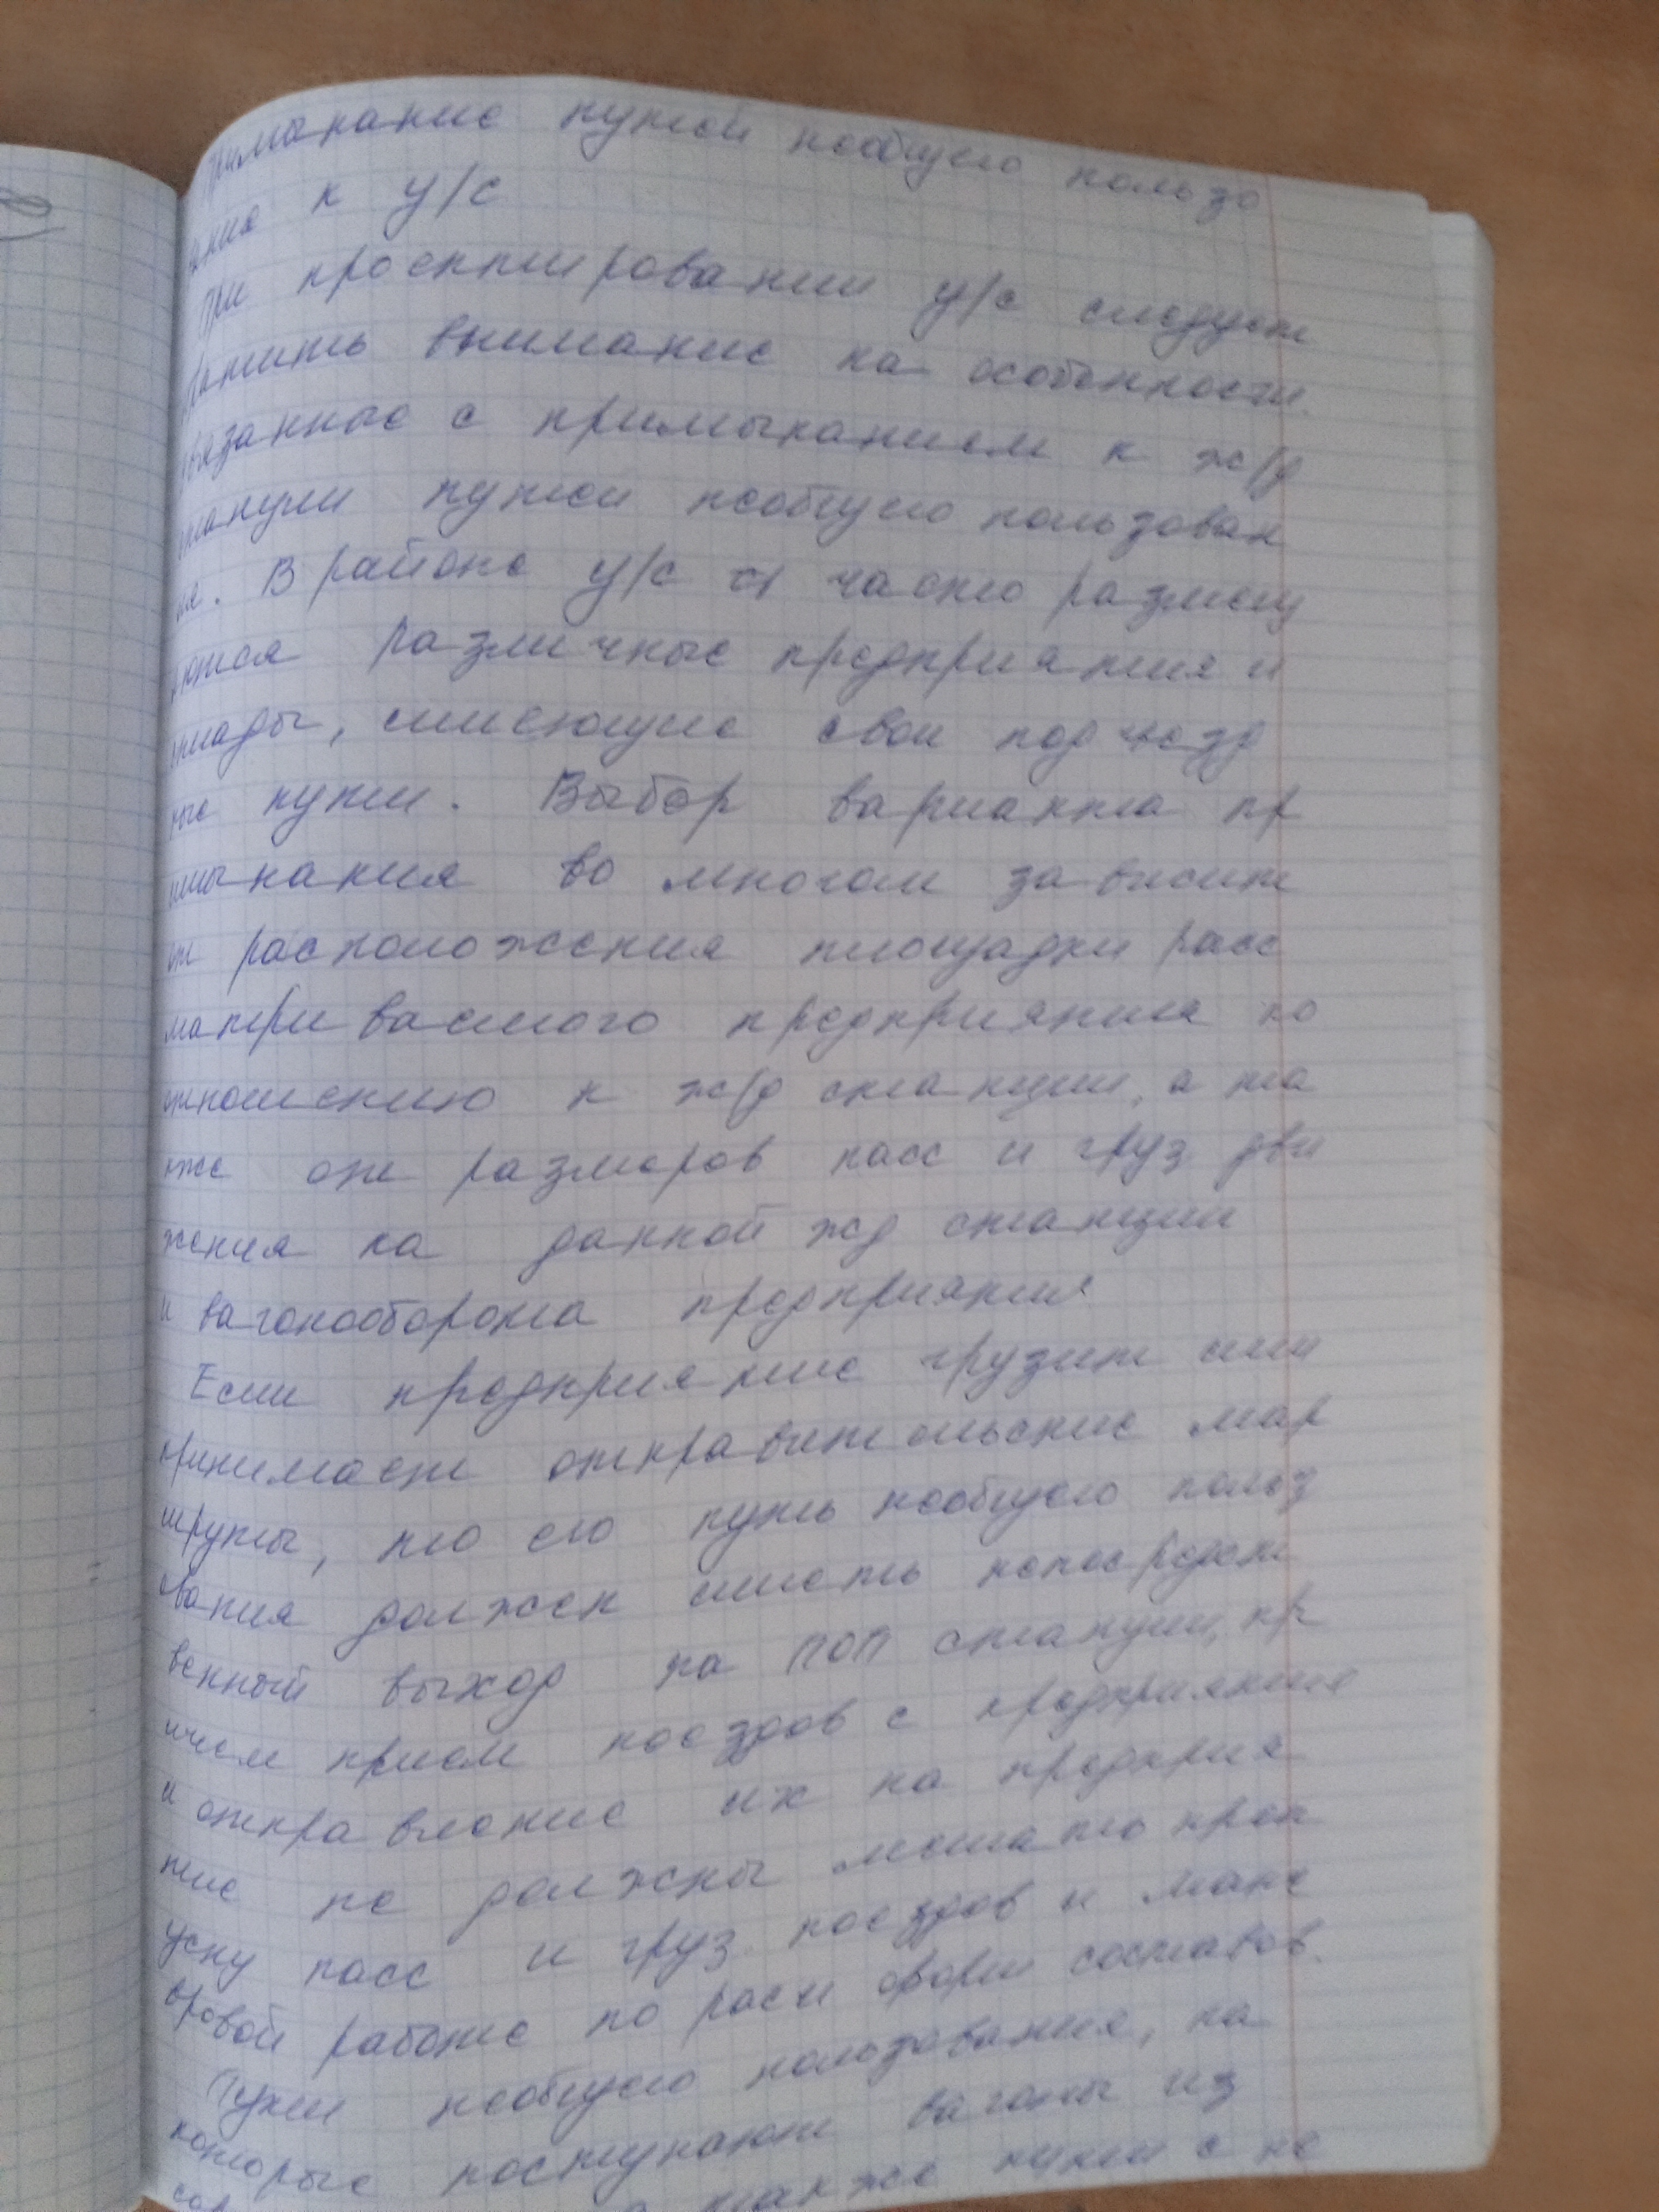 Примыкание путей необщего пользо
ания к у/с
При проектировании у/с следует
ратить внимание на особенности
вязанные с примыканием к ж/д
танции путей необщего пользован
ия. В районе у/с часто размещ
аются различные предприятия и
склады, имеющие свои подъезд
ные пути. Выбор варианта пр
имыкания во многом зависит
от расположения площадки расс
матриваемого предприятия по
отношению к ж/д станции, а та
кже от размеров пасс и груз дви
жения на данной жд станции
и вагонооборота предприятия
Если предприятие грузит или
принимает отправительские мар
шруты, то его путь необщего польз
ования должен иметь непосредст
венный выход на ПОП станции, пр
ичем прием поездов с предприятия
и отправление их на предприя
тие не должны мешать проп
уску пасс и груз поездов и мане
вровой работе по расф и форм составов.
Пути необщего пользования, на
которые поступают вагоны из
также пути с не